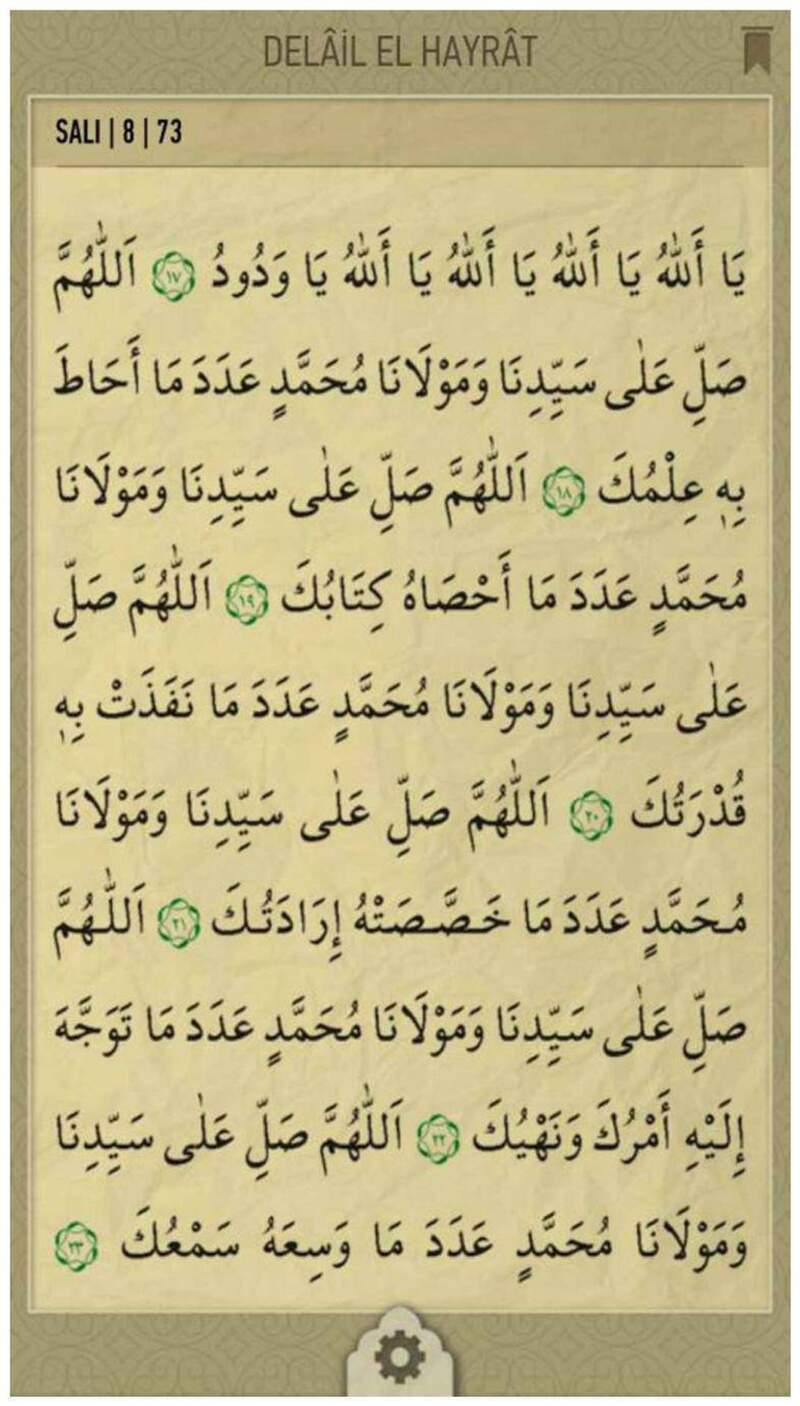 DELÂİL EL HAYRÂT
SALI | 8 | 73
يَا أَللهُ يَا أَللهُ يَا أَللهُ يَا أَللهُ يَا وَدُودُ ١٧ اَللّٰهُمَّ
صَلِّ عَلٰى سَيِّدِنَا وَمَوْلَانَا مُحَمَّدٍ عَدَدَ مَا أَحَاطَ
بِهٖ عِلْمُكَ ١٨ اَللّٰهُمَّ صَلِّ عَلٰى سَيِّدِنَا وَمَوْلَانَا
مُحَمَّدٍ عَدَدَ مَا أَحْصَاهُ كِتَابُكَ ١٩ اَللّٰهُمَّ صَلِّ
عَلٰى سَيِّدِنَا وَمَوْلَانَا مُحَمَّدٍ عَدَدَ مَا نَفَذَتْ بِهٖ
قُدْرَتُكَ ٢٠ اَللّٰهُمَّ صَلِّ عَلٰى سَيِّدِنَا وَمَوْلَانَا
مُحَمَّدٍ عَدَدَ مَا خَصَّصَتْهُ إِرَادَتُكَ ٢١ اَللّٰهُمَّ
صَلِّ عَلٰى سَيِّدِنَا وَمَوْلَانَا مُحَمَّدٍ عَدَدَ مَا تَوَجَّهَ
إِلَيْهِ أَمْرُكَ وَنَهْيُكَ ٢٢ اَللّٰهُمَّ صَلِّ عَلٰى سَيِّدِنَا
وَمَوْلَانَا مُحَمَّدٍ عَدَدَ مَا وَسِعَهُ سَمْعُكَ ٢٣